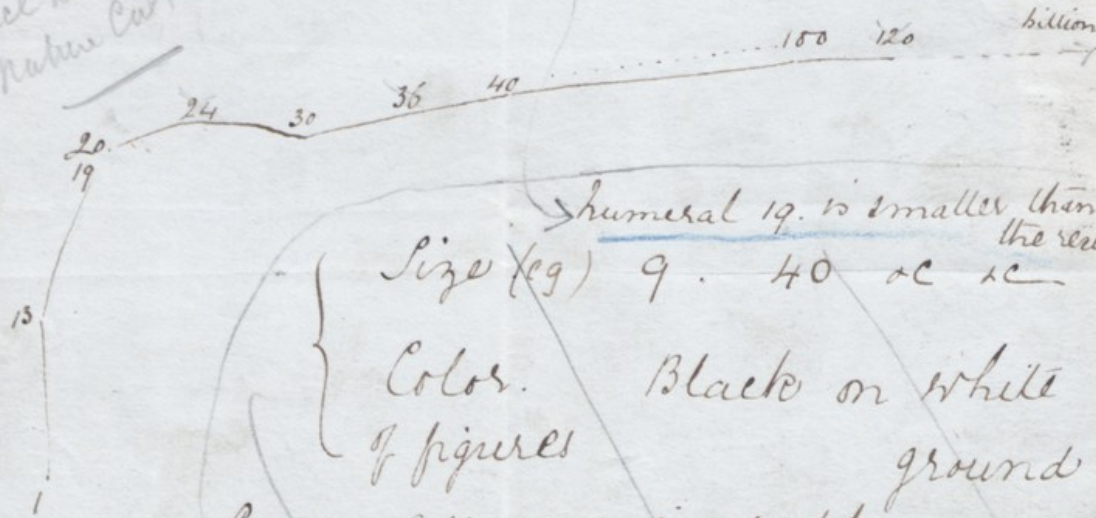 Nature
billion
100 120
40
36
30
24
20
19
13
1
numeral 19. is smaller than
the
Size (eg) 9. 40 &c &c
Color. Black on white
of figures ground